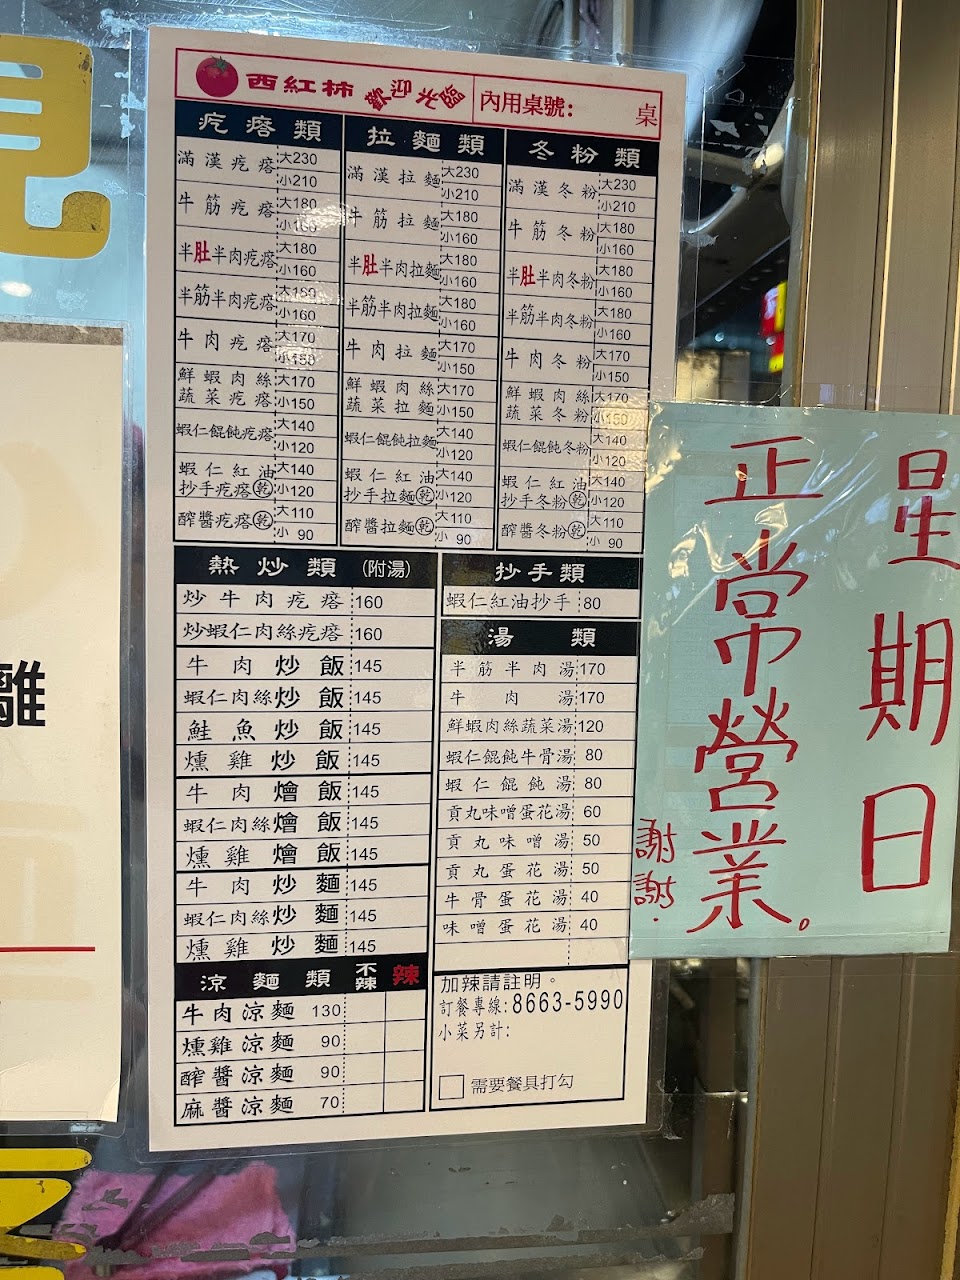 西紅柿 歡迎光臨 內用桌號: 桌
疙瘩類
滿漢疙瘩 大230 小210
牛筋疙瘩 大180 小160
半肚半肉疙瘩 大180 小160
半筋半肉疙瘩 大180 小160
牛肉疙瘩 大170 小150
鮮蝦肉絲蔬菜疙瘩 大170 小150
蝦仁餛飩疙瘩 大140 小120
蝦仁紅油抄手疙瘩乾 大140 小120
醡醬疙瘩乾 大110 小90
拉麵類
滿漢拉麵 大230 小210
牛筋拉麵 大180 小160
半肚半肉拉麵 大180 小160
半筋半肉拉麵 大180 小160
牛肉拉麵 大170 小150
鮮蝦肉絲蔬菜拉麵 大170 小150
蝦仁餛飩拉麵 大140 小120
蝦仁紅油抄手拉麵乾 大140 小120
醡醬拉麵乾 大110 小90
冬粉類
滿漢冬粉 大230 小210
牛筋冬粉 大180 小160
半肚半肉冬粉 大180 小160
半筋半肉冬粉 大180 小160
牛肉冬粉 大170 小150
鮮蝦肉絲蔬菜冬粉 大170 小150
蝦仁餛飩冬粉 大140 小120
蝦仁紅油抄手冬粉乾 大140 小120
醡醬冬粉乾 大110 小90
熱炒類 (附湯)
炒牛肉疙瘩 160
炒蝦仁肉絲疙瘩 160
牛肉炒飯 145
蝦仁肉絲炒飯 145
鮭魚炒飯 145
燻雞炒飯 145
牛肉燴飯 145
蝦仁肉絲燴飯 145
燻雞燴飯 145
牛肉炒麵 145
蝦仁肉絲炒麵 145
燻雞炒麵 145
涼麵類 不辣 辣
牛肉涼麵 130
燻雞涼麵 90
醡醬涼麵 90
麻醬涼麵 70
抄手類
蝦仁紅油抄手 80
湯類
半筋半肉湯 170
牛肉湯 170
鮮蝦肉絲蔬菜湯 120
蝦仁餛飩牛骨湯 80
蝦仁餛飩湯 80
貢丸味噌蛋花湯 60
貢丸味噌湯 50
貢丸蛋花湯 50
牛骨蛋花湯 40
味噌蛋花湯 40
加辣請註明。
訂餐專線:8663-5990
小菜另計:
需要餐具打勾
星期日
正常營業。
謝謝.
離